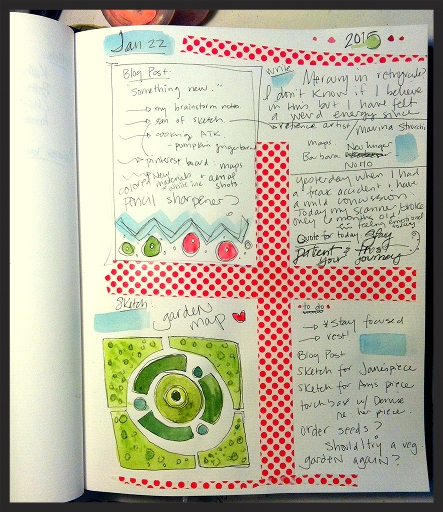 Jan 22
2015
Blog Post:
"Something new.."
my brainstorm notes.
of sketch.
cooking
pumpkin gingerbread
pinterest board: maps
colored materials + aerial
shots
Pencil sharpener
write
Mercury in retrograde?
I don't know if I believe
in this, but I have felt
a weird energy since
reference artist:
maps
New Yorker
Barbara
NoHo
yesterday when I had
a freak accident + have
a mild concussion.
Today my scanner broke
only 2 months old
feeling emotional
today
Quote for today: Stay
patient + trust
your journey
Sketch:
garden
map
to do
* Stay focused
rest!
Blog Post
Sketch for Jane's piece
Sketch for Amy's piece
touch base w/ Denise
re her piece.
order seeds?
Should I try a veg.
garden again?